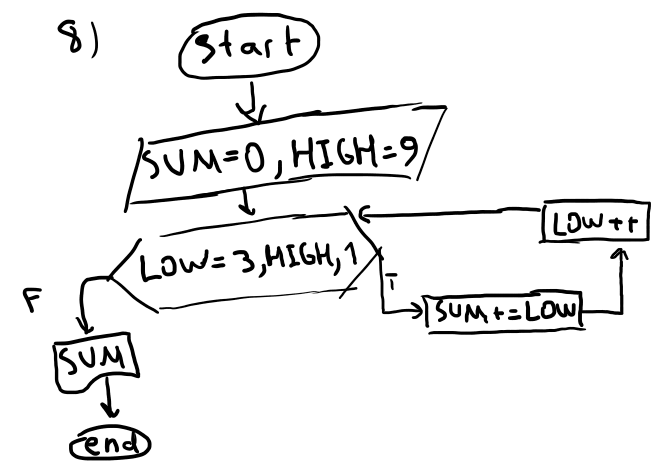 8)
start
SUM=0, HIGH=9
LOW++
LOW=3,HIGH,1
T
F
SUM+=LOW
SUM
end